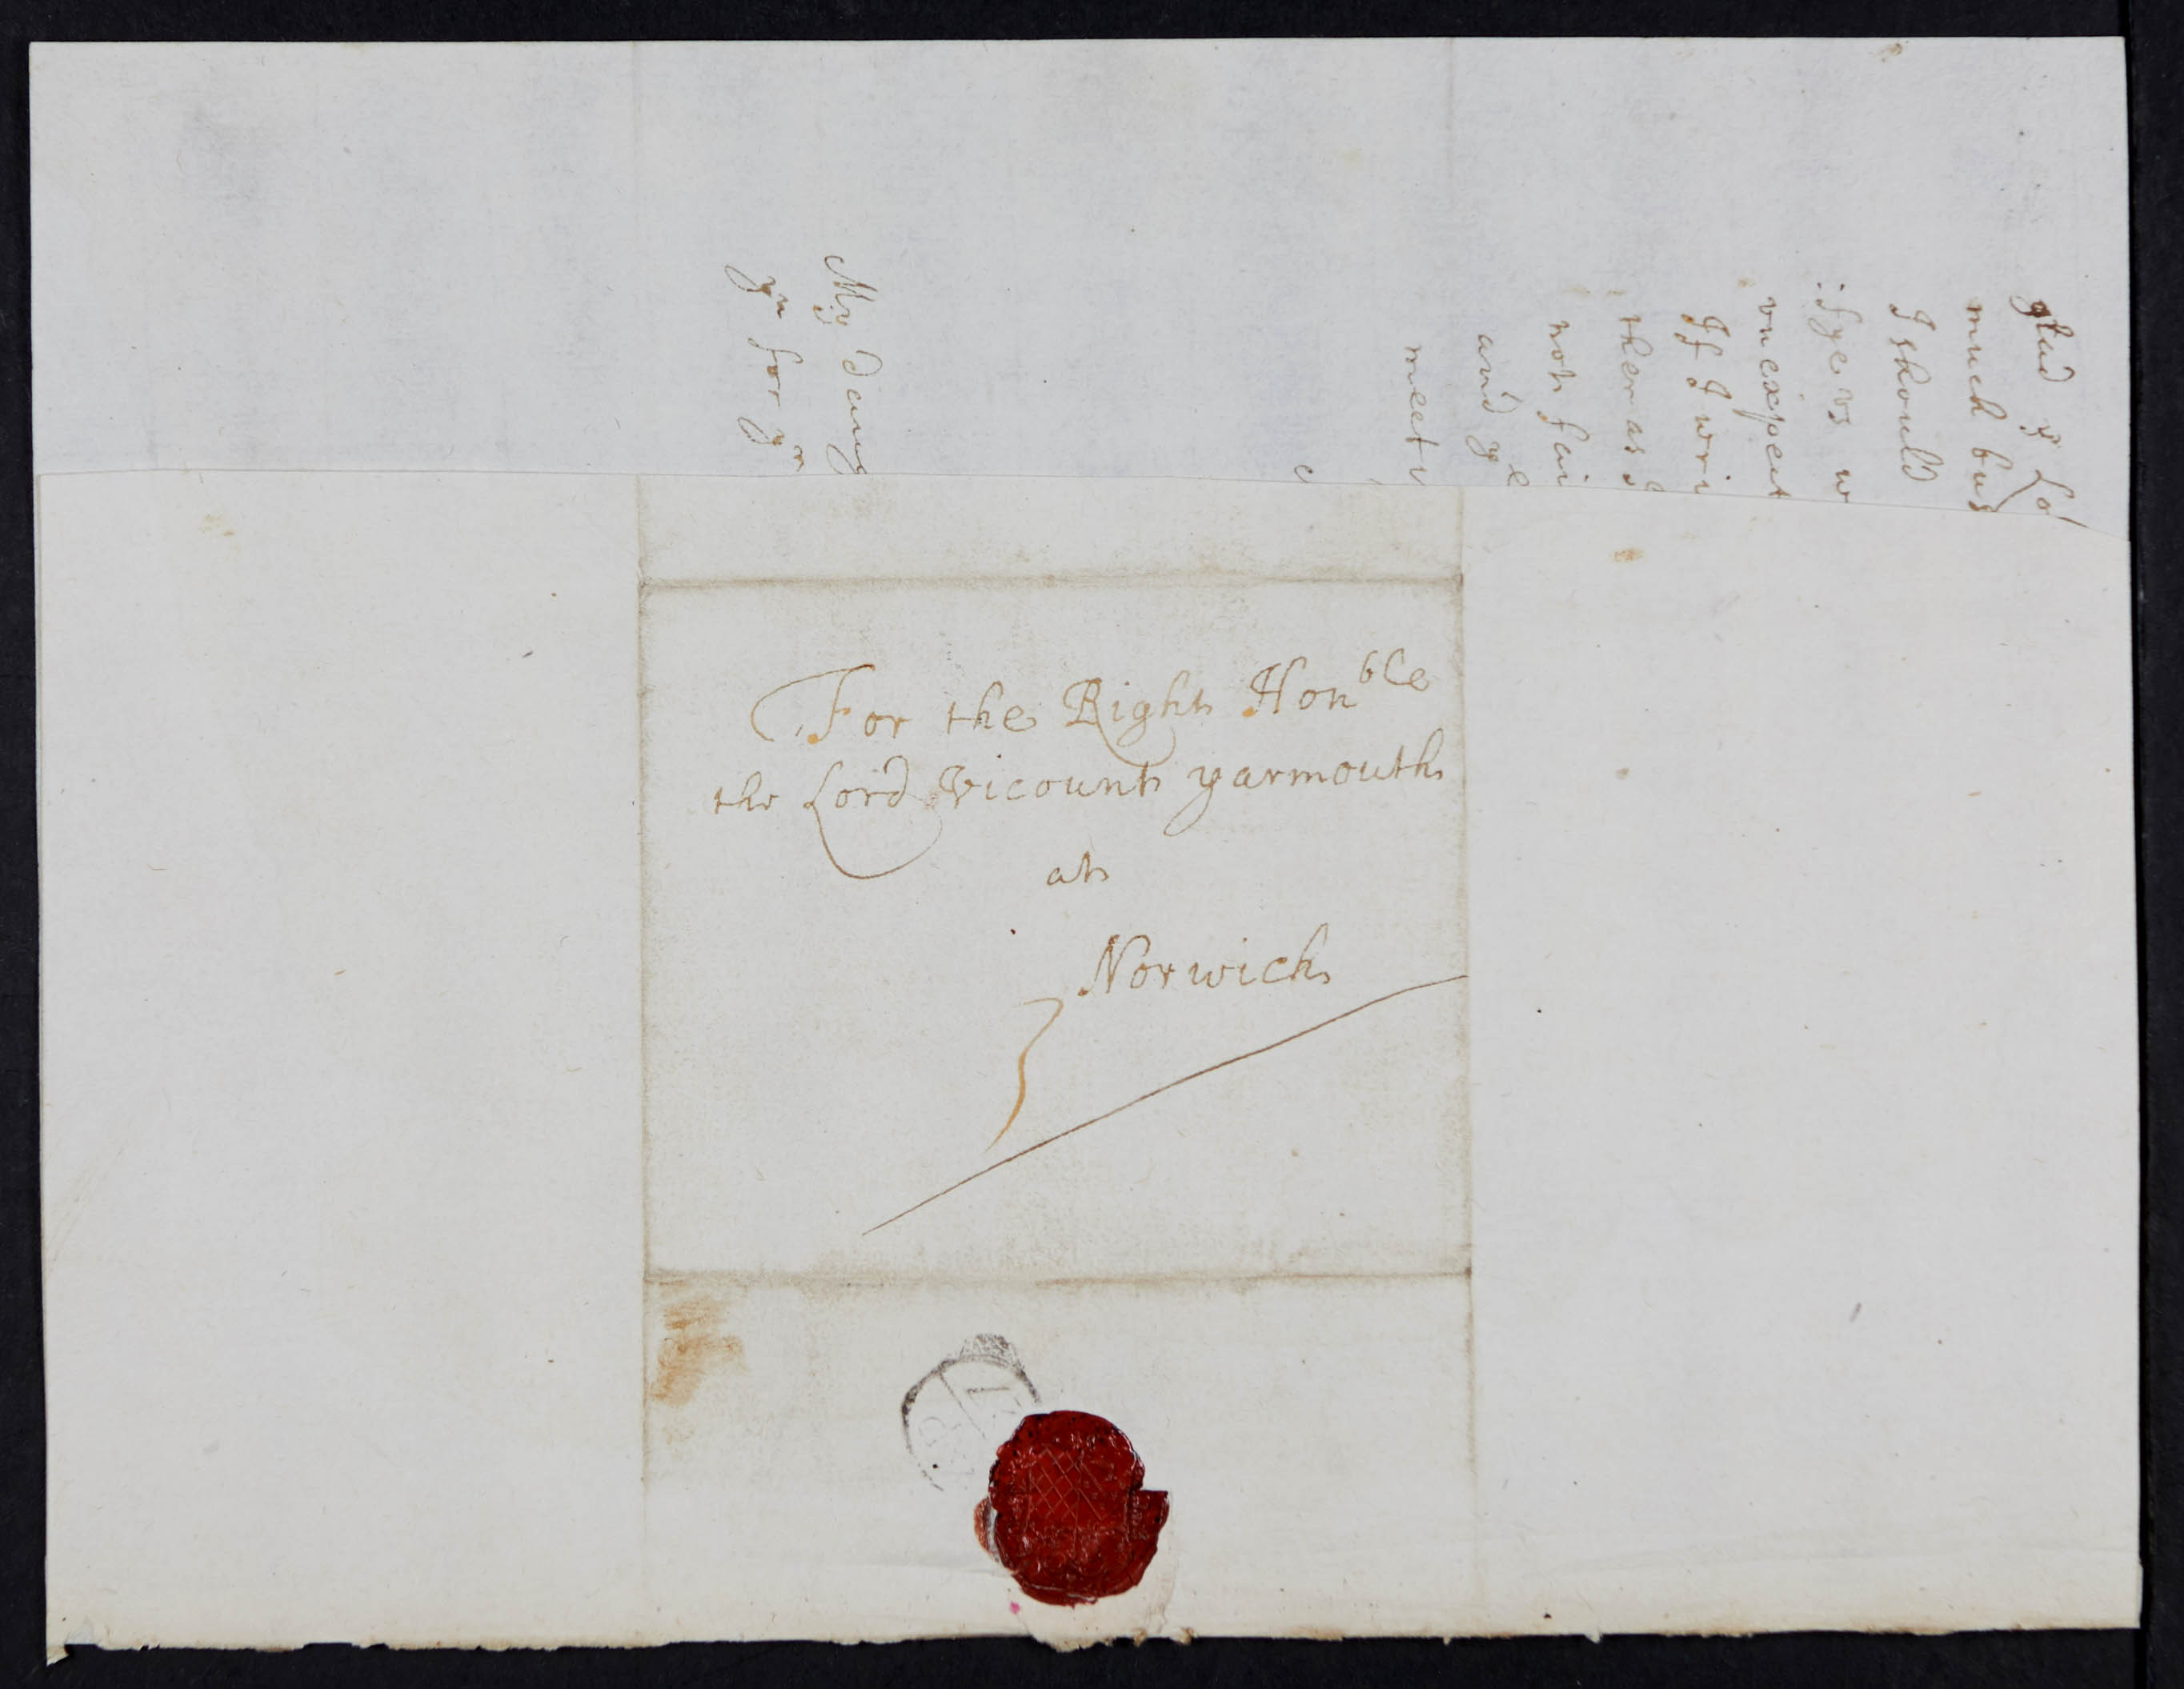 For the Right Hon^ble
the Lord Vicount yarmouth
at
Norwich
3
glad yt Lo
much bus
I should
if ye vs w
vnexpect
If I wri
ther as I
not fai
and ye
meet
My daug
yu for yr